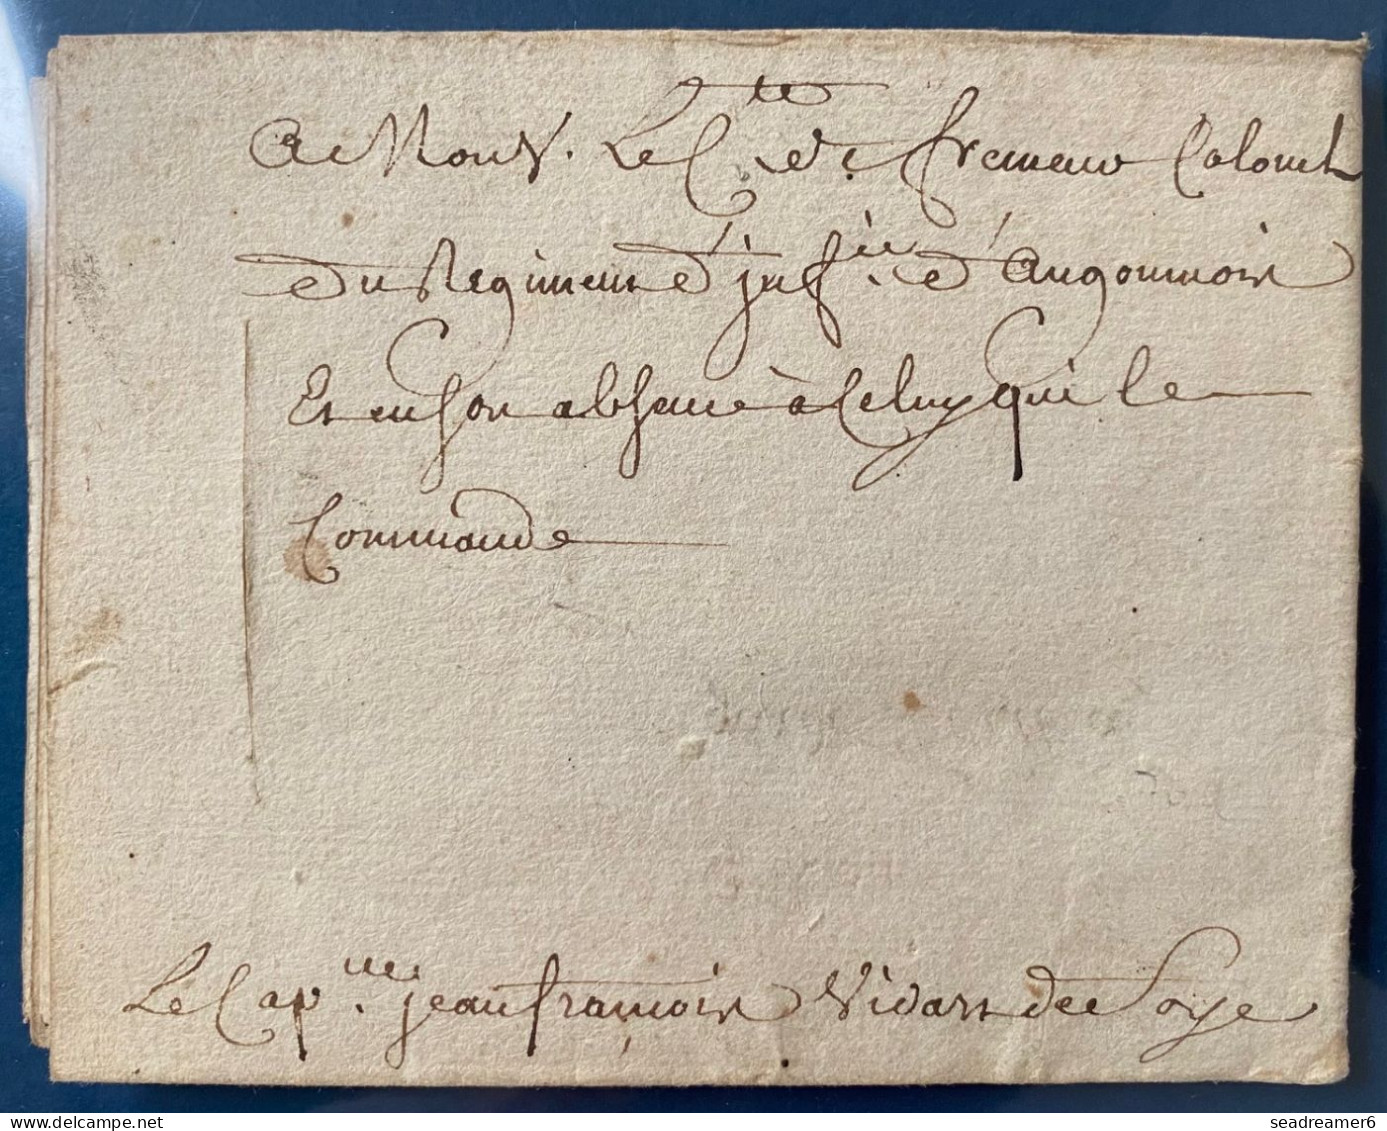 A Mons. Le C.te de fremeur Colonel
du Regiment d'inf.ie d'Angoumois
Et en son absence à Celuy qui le
Commande
Le Cap.ne jean françois Vidart de Soye
seadreamer6
Delcampe.net